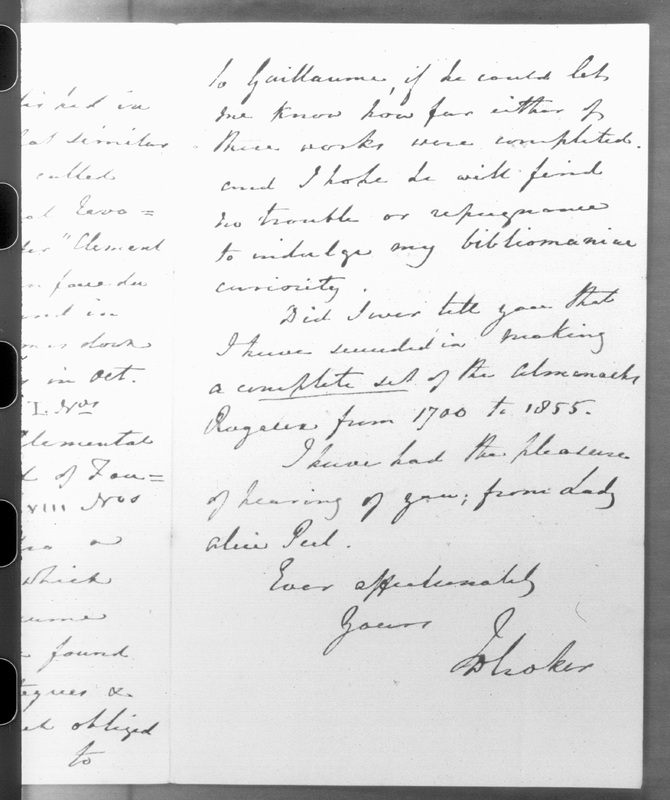 his hed in
at similar
called
Revo=
"Clement
in
down
in Oct.
L. Nos
Clemental
of Fou=
XVIII Nos
a
which
found
&
obliged
to
to Guillaume, if he could let
me know how far either of
these works were completed.
and I hope he will find
no trouble or repugnance
to indulge my bibliomaniac
curiosity.
Did I ever tell you that
I have succeeded in making
a complete set of the Almanachs
Royales from 1700 to 1855.
I have had the pleasure
of hearing of you, from Lady
Alice Peel.
Ever affectionately
Yours
J W Croker